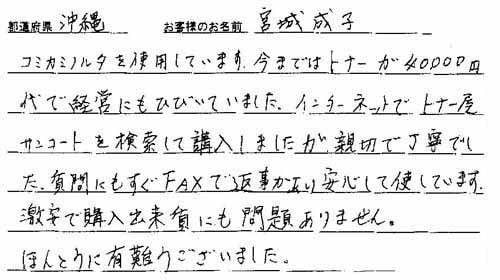 都道府県 沖縄 お客様のお名前 宮城成子
コミカミノルタを使用しています。今まではトナーが40000円
代で経営にもひびいていました、インターネットでトナー屋
サンコートを検索して講入しましたが親切で丁寧でし
た。質問にもすぐFAXで返事があり安心して使しています。
激安で購入出来質にも問題ありません。
ほんとうに有難うございました。